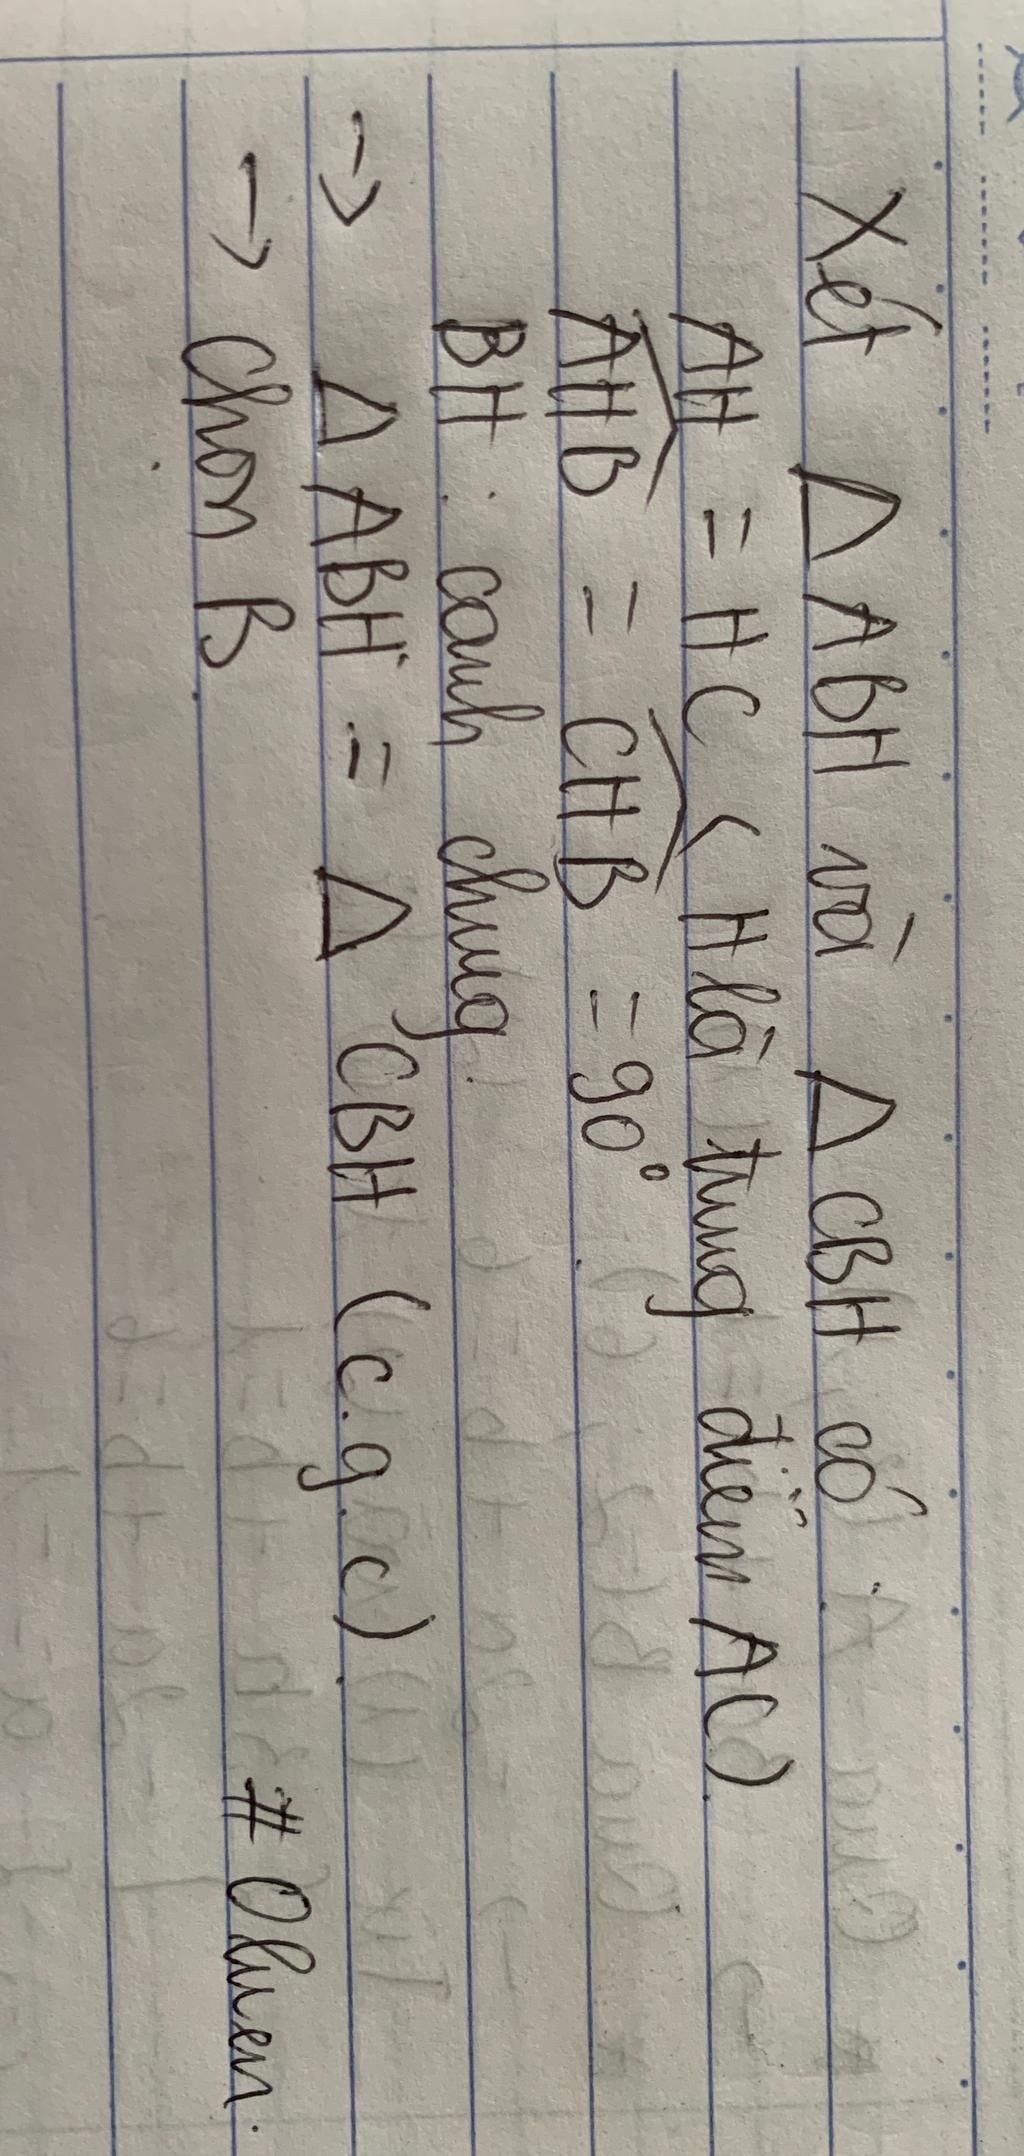 Xét Δ ABH và Δ CBH có
AH = HC (H là trung điểm AC)
AHB = CHB = 90°
BH : cạnh chung
→ Δ ABH = Δ CBH (c.g.c)
→ Chọn B
# Ohuen.